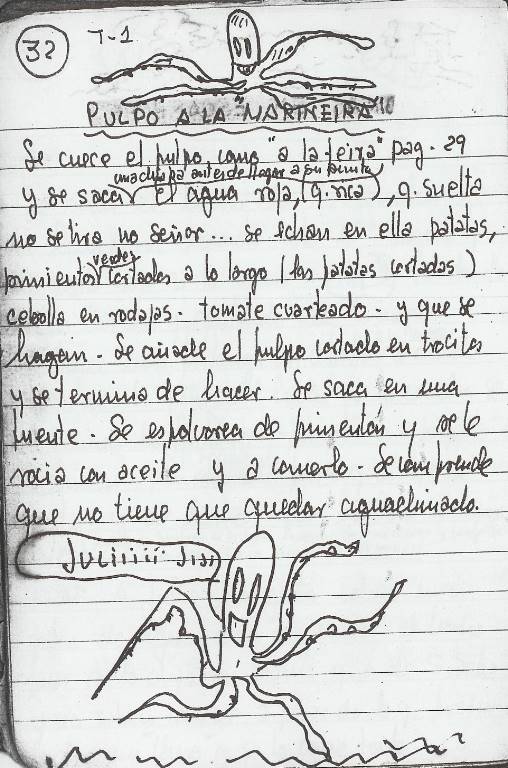 32
T-1
PULPO A LA "MARINEIRA"
Se cuece el pulpo, como "a la feira" pag. 29
un antes de llegar a su punto
y se saca, el agua roja, (q. rica), q. suelta
no se tira no señor... se echan en ella patatas,
verdes
pimientos cortados a lo largo (las patatas cortadas)
cebolla en rodajas. tomate cuarteado. y que se
hagan. Se añade el pulpo cortado en trocitos
y se termina de hacer. Se saca en una
fuente. Se espolvorea de pimentón y se le
rocia con aceite y a comerlo. Se comprende
que no tiene que quedar aguachinado.
JULiiiiii Jiji